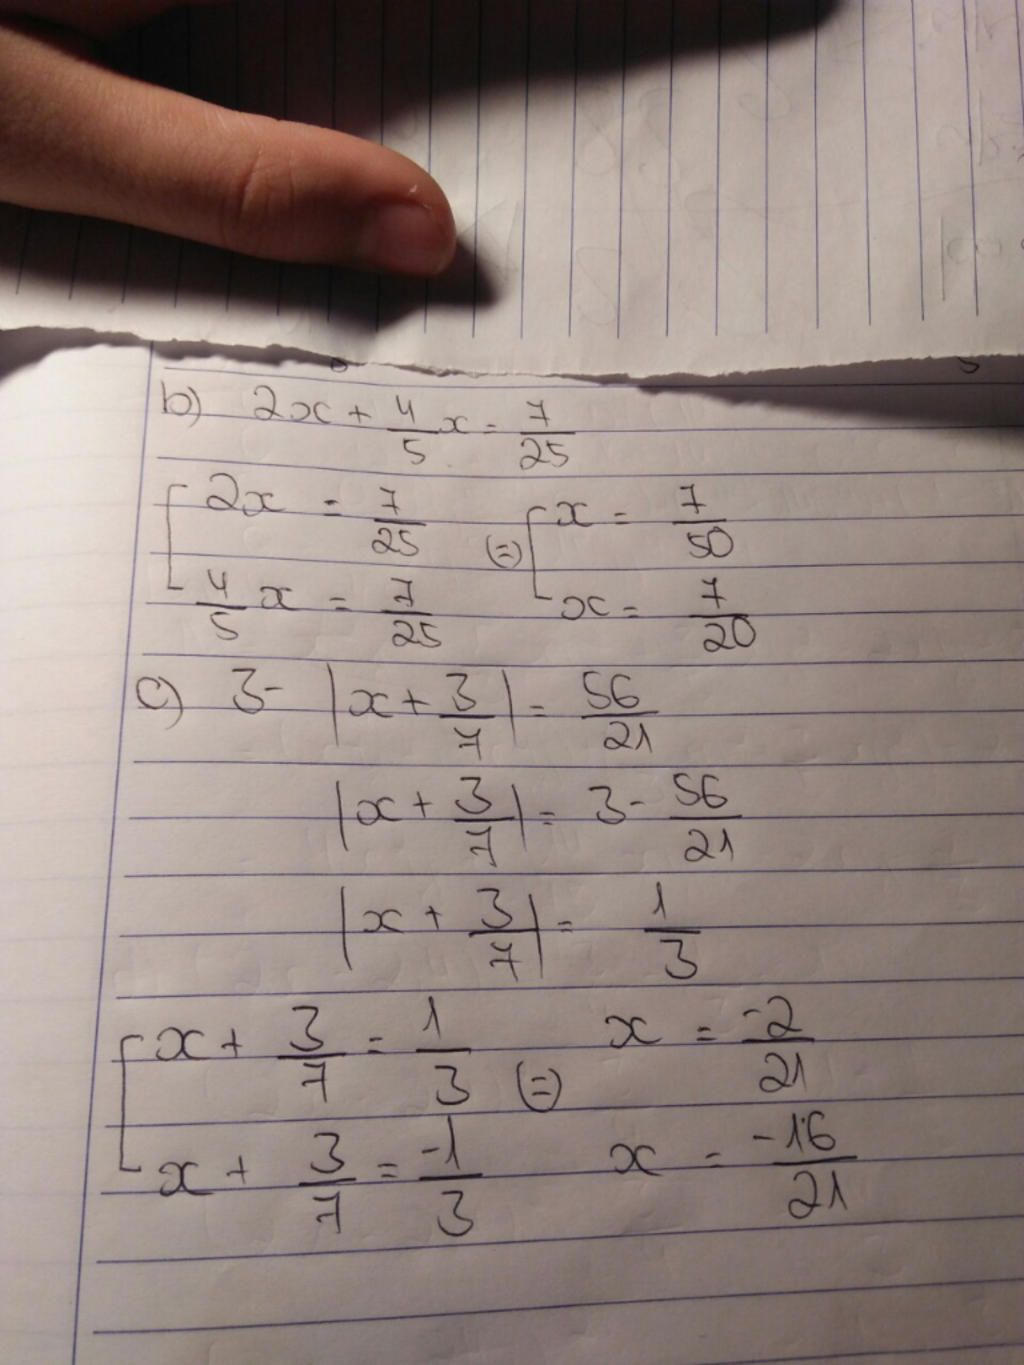 b) 2x + 4/5 x = 7/25
[ 2x = 7/25 (=) [ x = 7/50
[ 4/5 x = 7/25 [ x = 7/20
c) 3 - |x + 3/7| = 56/21
|x + 3/7| = 3 - 56/21
|x + 3/7| = 1/3
[ x + 3/7 = 1/3 (=) x = -2/21
[ x + 3/7 = -1/3 x = -16/21